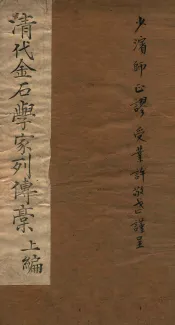 少濱師正謬 受業許敬武謹呈
清代金石學家列傳稾上編